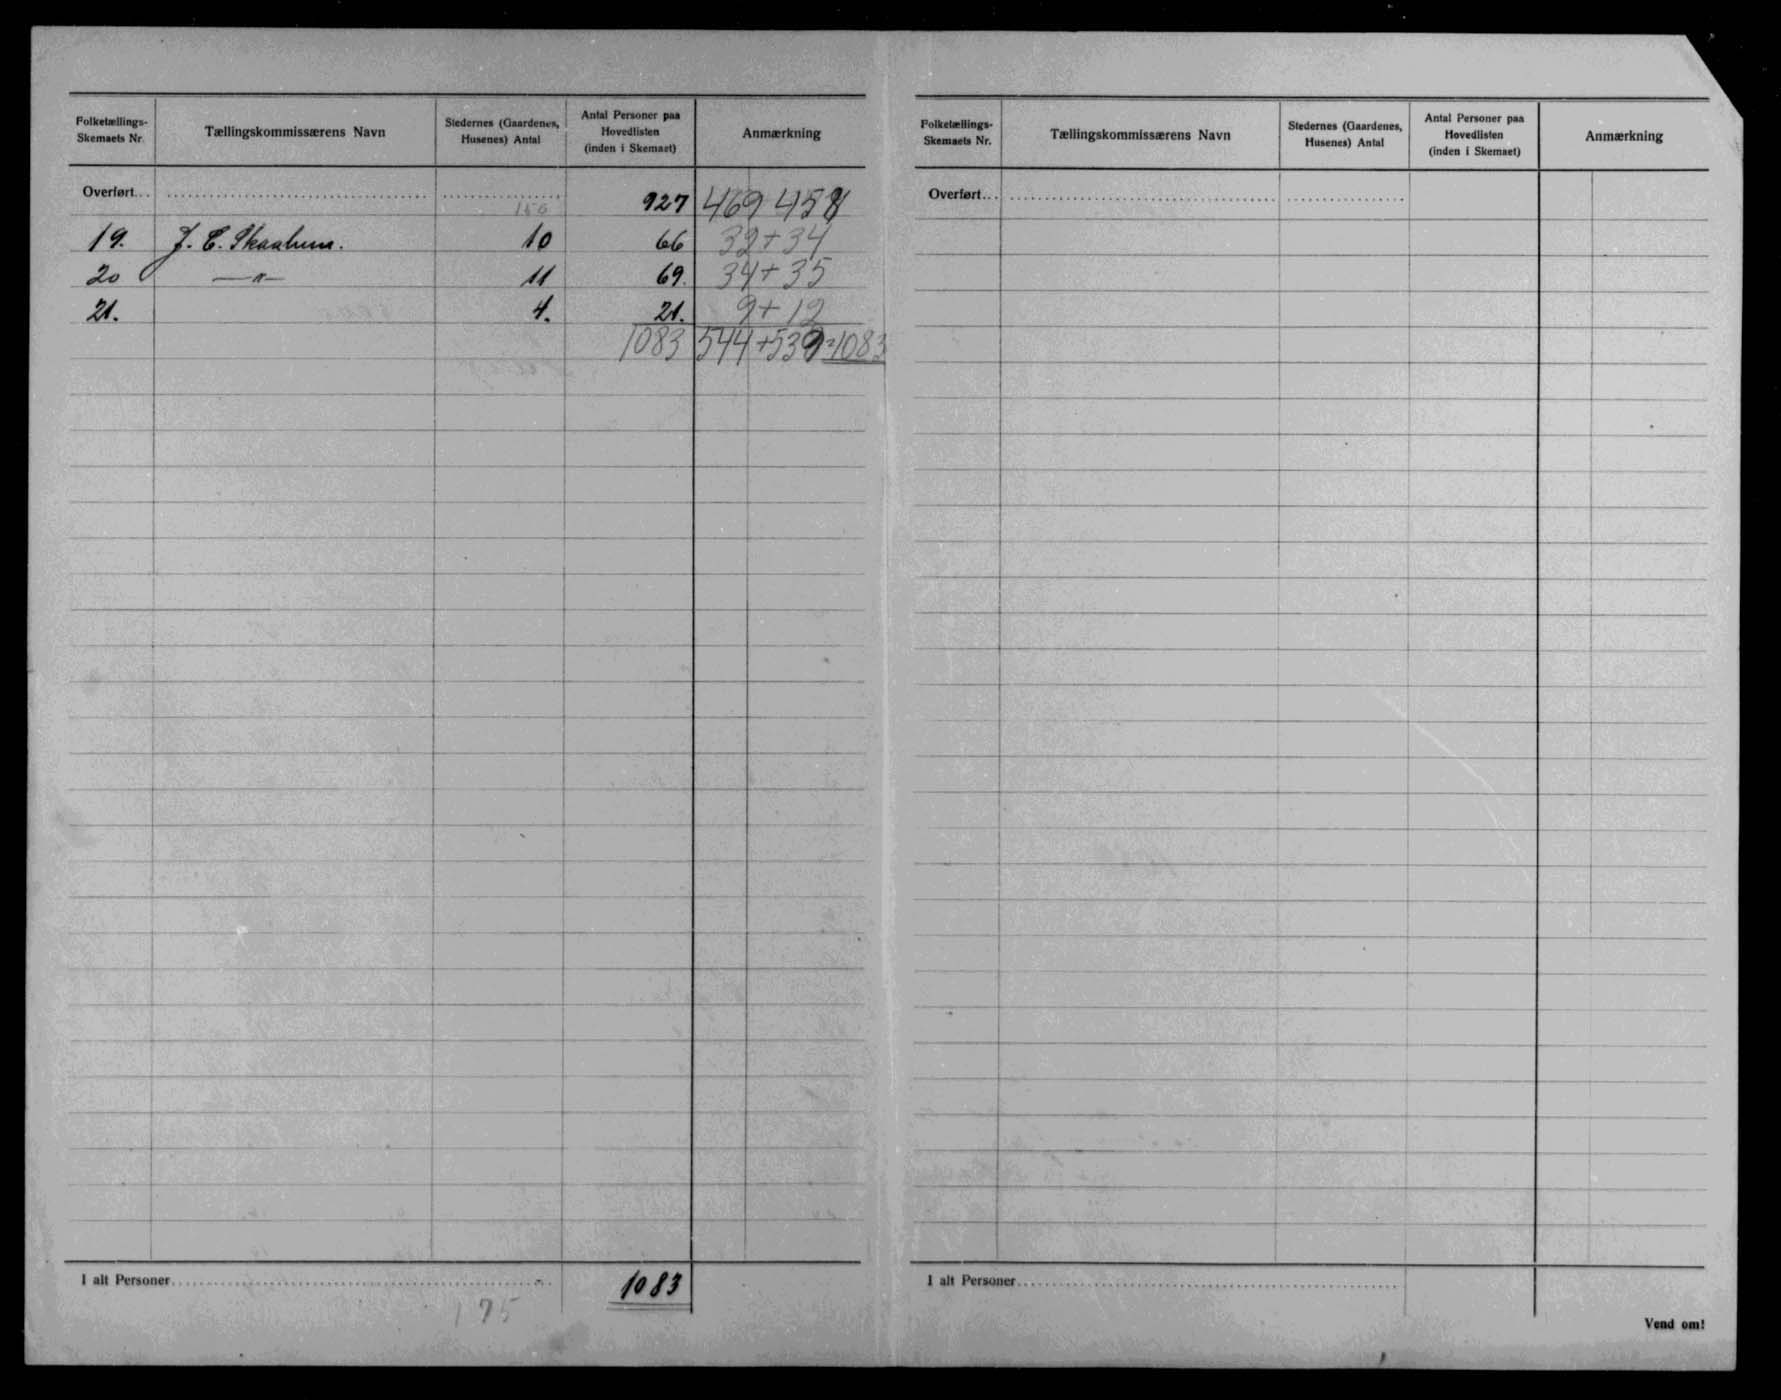 Folketællings-Skemaets Nr. Tællingskommissærens Navn Stedernes (Gaardenes, Husenes) Antal Antal Personer paa Hovedlisten (inden i Skemaet) Anmærkning
Overført... 150 927 469 458
19. 10 66 32+34
20 —„— 11 69. 34+35
21. 4. 21. 9+12
1083 544+539=1083
I alt Personer 1083
175
Folketællings-Skemaets Nr. Tællingskommissærens Navn Stedernes (Gaardenes, Husenes) Antal Antal Personer paa Hovedlisten (inden i Skemaet) Anmærkning
Overført...
I alt Personer
Vend om!